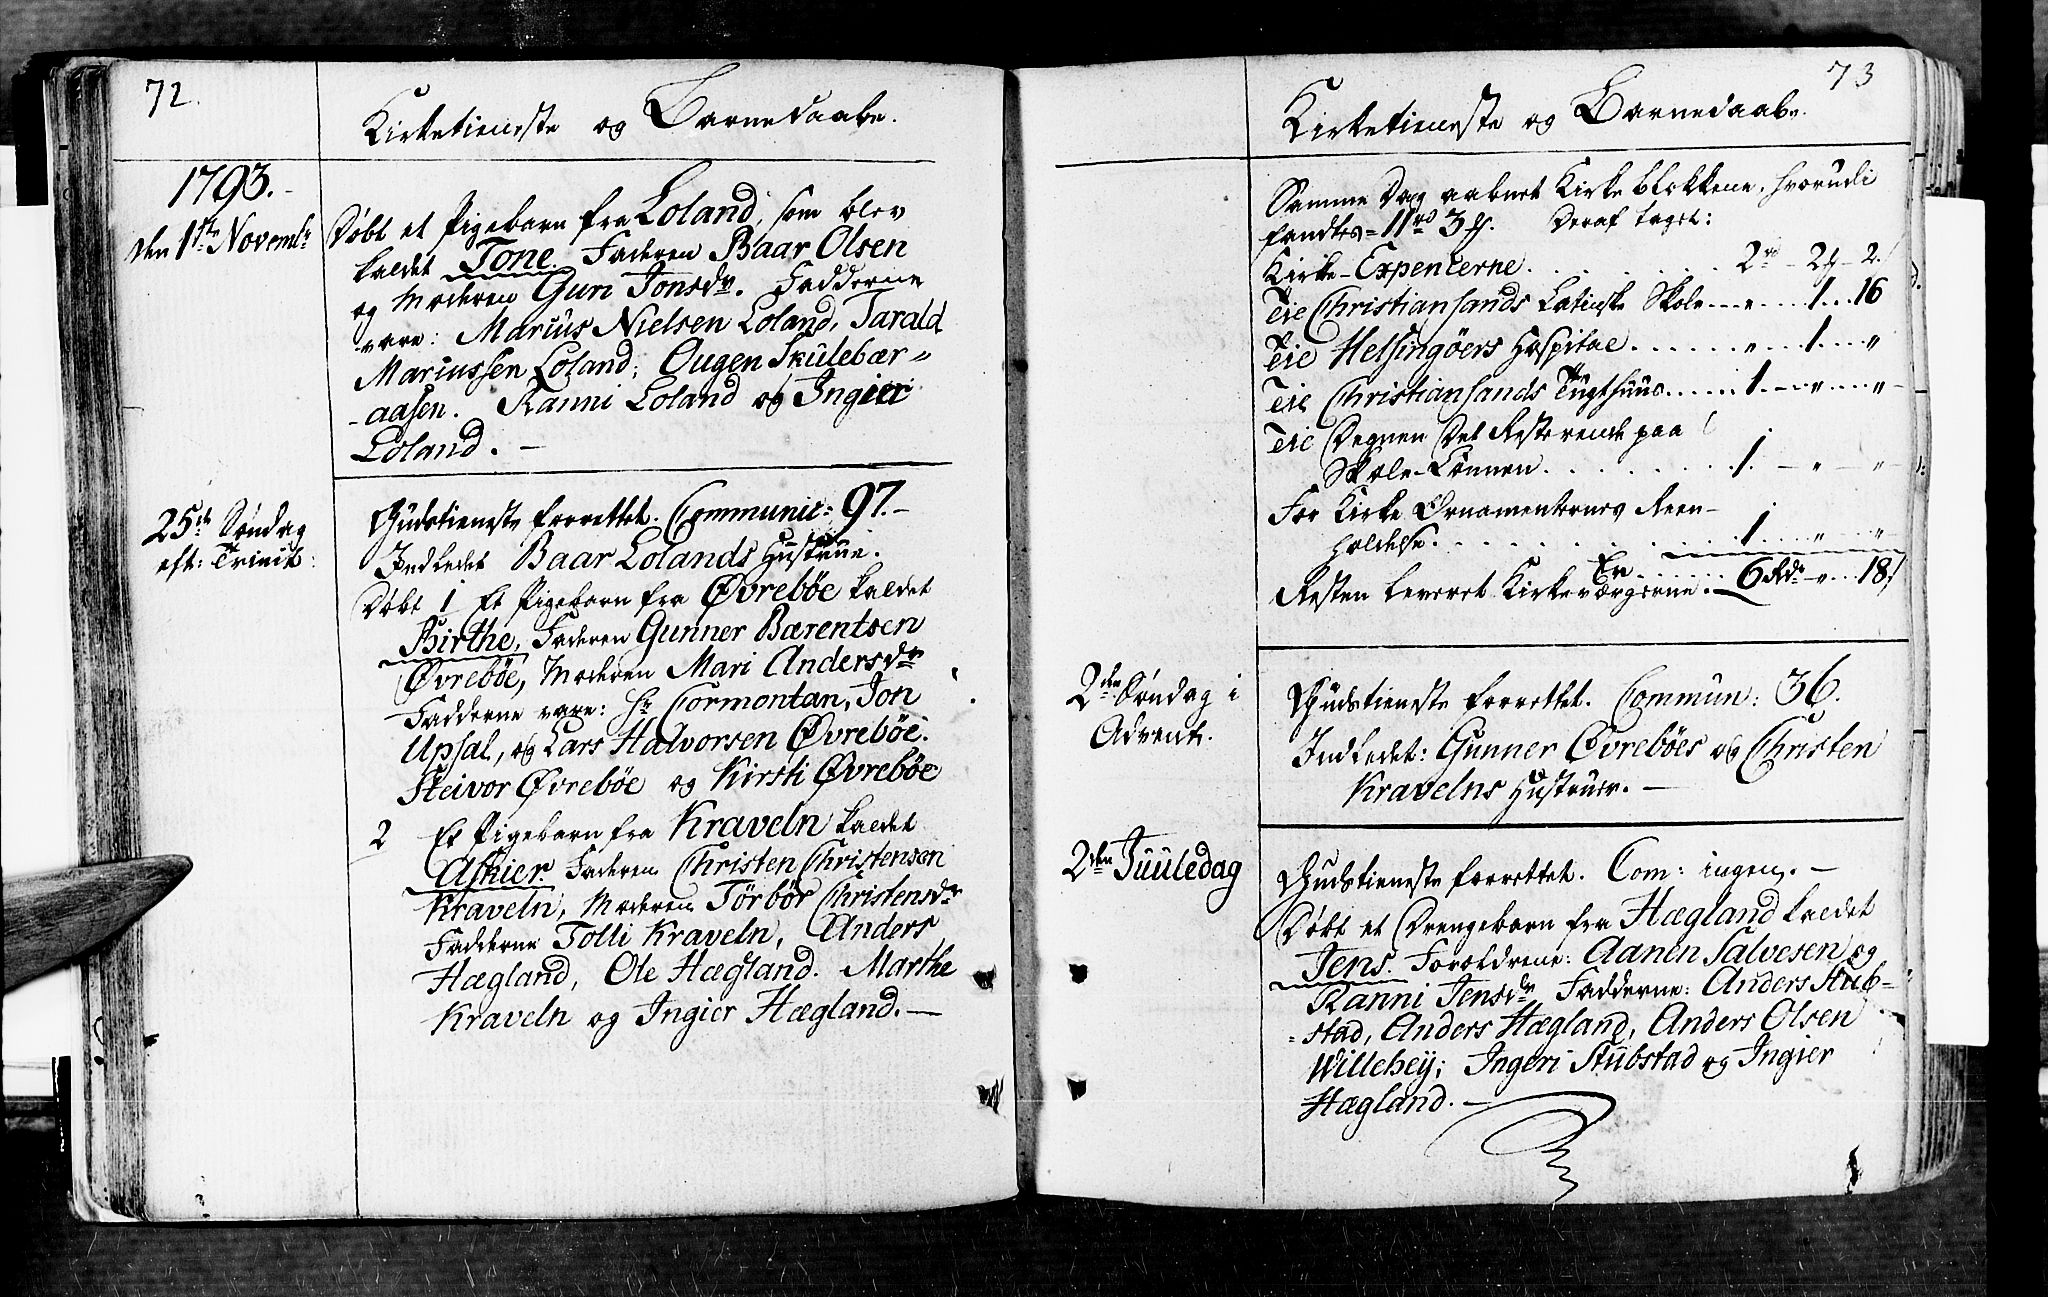 72.
Kirketieneste og Barnedaabe.
1793.
den 1ste Novembr
Døbt et Pigebarn fra Loland, som blev
kaldet Tone. Faderen Baar Olsen
og Moderen Guri Jonsdr. Fadderne
vare: Marius Nielsen Loland, Tarald
Mariussen Loland; Ougen Skulebær-
-aasen. Ranni Loland og Ingier
Loland. -
25de Søndag
eft: Trinit:
Gudstieneste forrettet. Communic: 97. -
Indledet Baar Lolands Hustrue.
Døbt 1 Et Pigebarn fra Øvrebøe kaldet
Birthe, Faderen Gunner Bærentsen
Øvrebøe, Moderen Mari Andersdr
Fadderne vare: Hr Cormontan, Jon
Upsal, og Lars Halvorsen Øvrebøe.
Steivor Øvrebøe og Kirsti Øvrebøe
2 Et Pigebarn fra Kraveln kaldet
Askier. Faderen Christen Christensen
Kraveln, Moderen Torbør Christensdr
Fadderne Tolli Kraveln, Anders
Hægland, Ole Hægland. Marthe
Kraveln og Ingier Hægland. -
73
Kirketieneste og Barnedaabe.
Samme Dag aabnet Kirke blokkene, hvorudi
fandtes = 11rd 3 ꝑ. Deraf taget:
Kirke-Expencerne . . . . . . 2rd - 2ꝑ - 2.
Til Christiansands Latinske Skole --- " --- 1 .. 16
Til Helsingøers Hospital . . . . . . " .. 1 ... "
Til Christiansands Tugthuus ...... 1 - " ... "
Til Degnen Det Resterende paa
Skole-Lønnen . . . . . . . . 1. - " - "
For Kirke Ornamenternes Reen-
holdelse. . . . . . . . . . 1 .. " .. "
Resten leveret Kirkeværgerne. Er ...... 6 Rdr - " .. 18
2den Søndag i
Advent.
Gudstieneste forrettet. Commun: 36.
Indledet: Gunner Øvrebøes og Christen
Kravelns Hustruer. -
2den Juuledag
Gudstieneste forrettet. Com: ingen. -
Døbt et Drengebarn fra Hægland kaldet
Jens. Forældrene: Aanen Salvesen og
Ranni Jensdr Fadderne: Anders Stub-
-stad, Anders Hægland, Anders Olsen
Willehey; Ingeri Stubstad og Ingier
Hægland. -